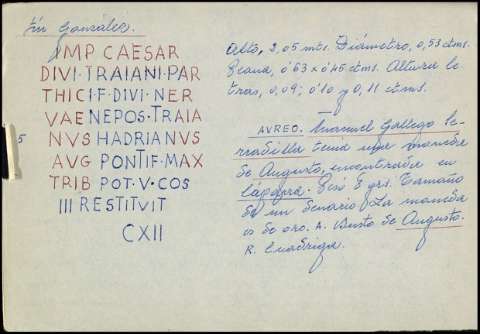 Tín González.
IMP CAESAR
DIVI · TRAIANI · PAR
THICI · F · DIVI · NER
VAE NEPOS · TRAIA
5 NVS HADRIANVS
AVG PONTIF · MAX
TRIB POT · V · COS
III RESTITVIT
CXII
Alto, 2,05 mts. Diámetro, 0,53 ctms.
Peana, 0'63 x 0'45 ctms. Altura le-
tras, 0,09; 0'10 y 0,11 ctms.
AVREO. Manuel Gallego
tenía una moneda
de Augusto, encontrada en
Pesó 8 grs. Tamaño
de un denario. La moneda
es de oro. A. Busto de Augusto.
R. Cuadriga.